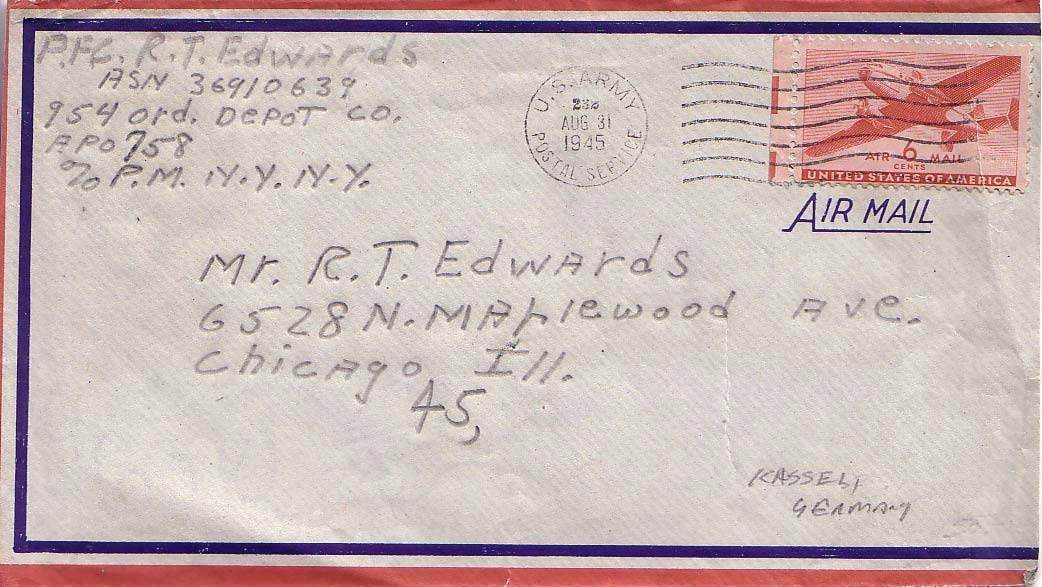 P.F.C. R.T. Edwards
ASN 36910639
954 ord. DEPOT CO.
APO 758
c/o P.M. N.Y. N.Y.
U.S. ARMY
AUG 31
1945
POSTAL SERVICE
AIR 6 MAIL
CENTS
UNITED STATES OF AMERICA
AIR MAIL
Mr. R.T. Edwards
6528 N. Maplewood Ave.
Chicago Ill.
45,
KASSEL,
GERMANY